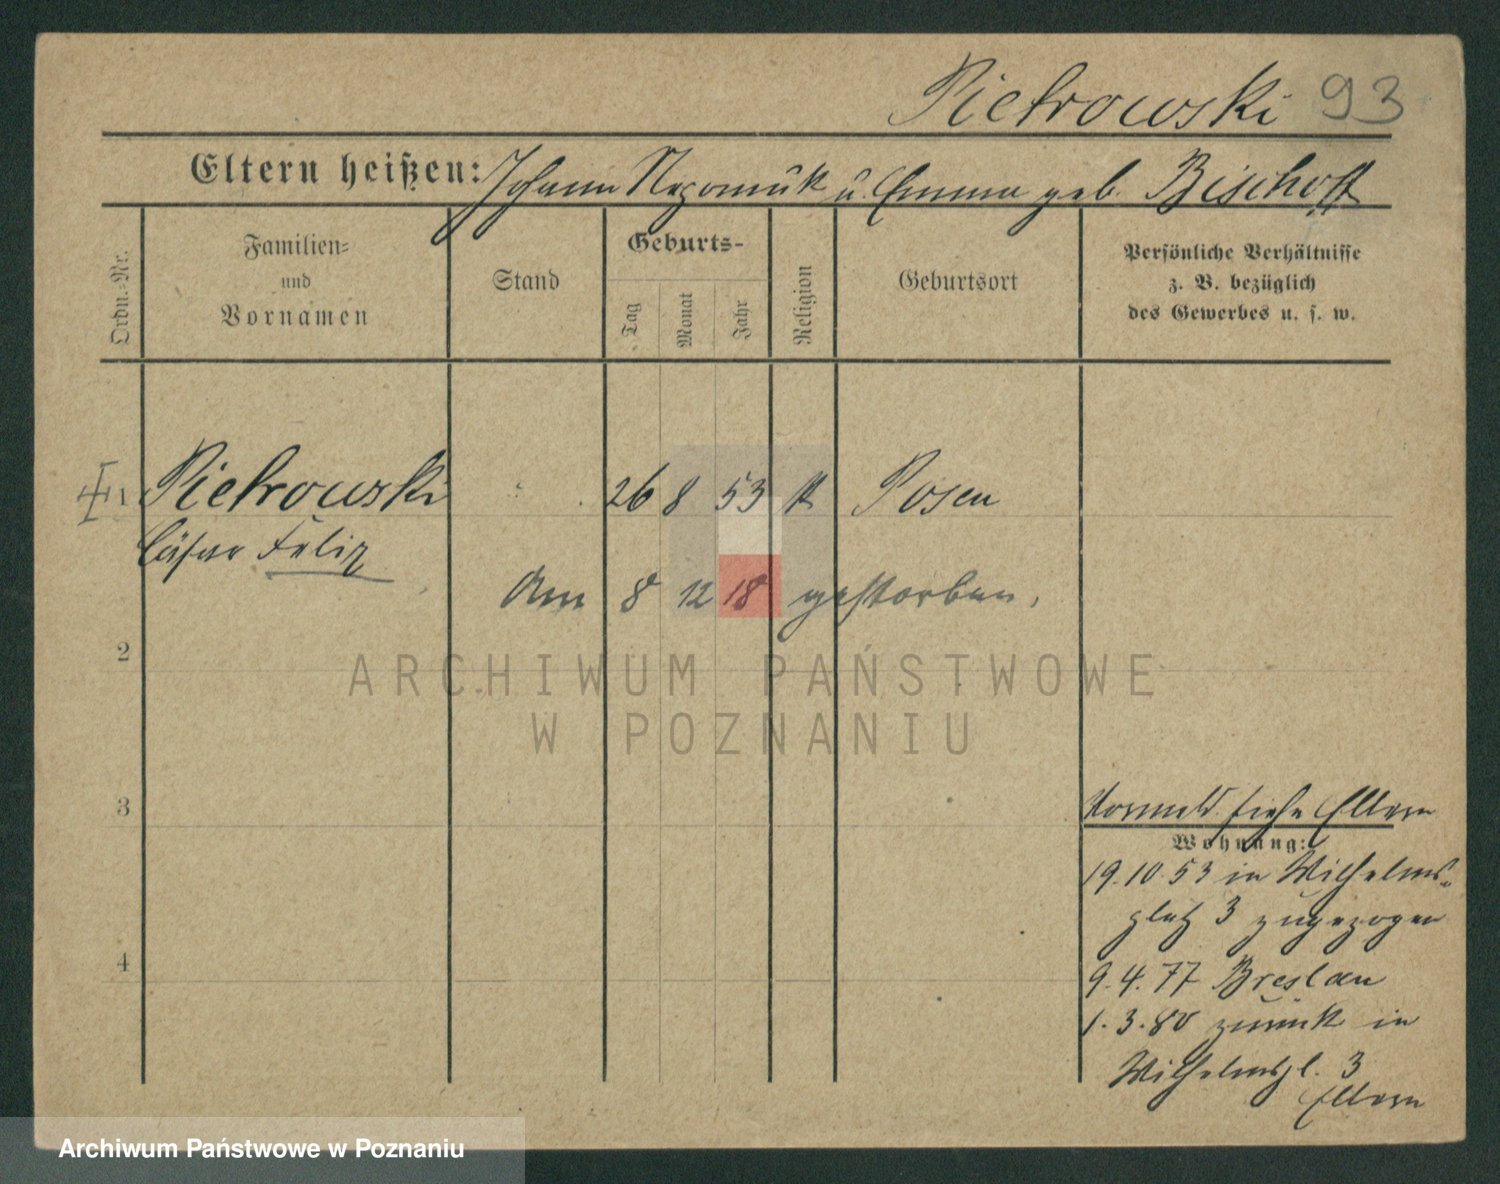 Pietrowski 93
Eltern heißen: Johann Nepomuk u. Emma geb. Bischoff
Ordn.-Nr.
Familien=
und
Vornamen
Stand
Geburts-
Tag
Monat
Jahr
Religion
Geburtsort
Persönliche Verhältnisse
z. B. bezüglich
des Gewerbes u. s. w.
1 Pietrowski 26 8 53 k Posen
Cäsar Felix
Am 8 12 18 gestorben.
2
ARCHIWUM PAŃSTWOWE
W POZNANIU
3
Vormeld. siehe Eltern
Wohnung:
19.10.53 in Wilhelms-
platz 3 zugezogen
4
9.4.77 Breslau
1.3.80 zurück in
Wilhelmspl. 3
Eltern
Archiwum Państwowe w Poznaniu